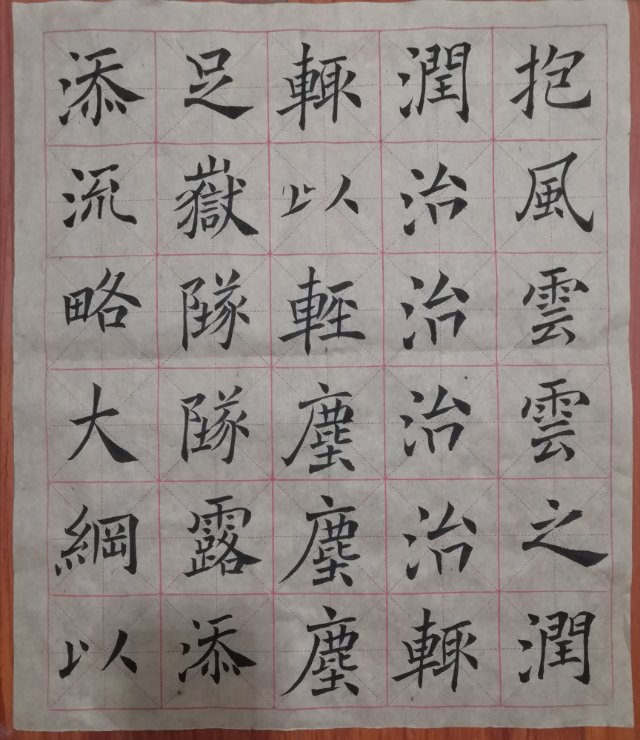 抱風雲雲之潤
潤治治治治輒
輒以輕塵塵塵
足嶽隊隊露添
添流略大綱以